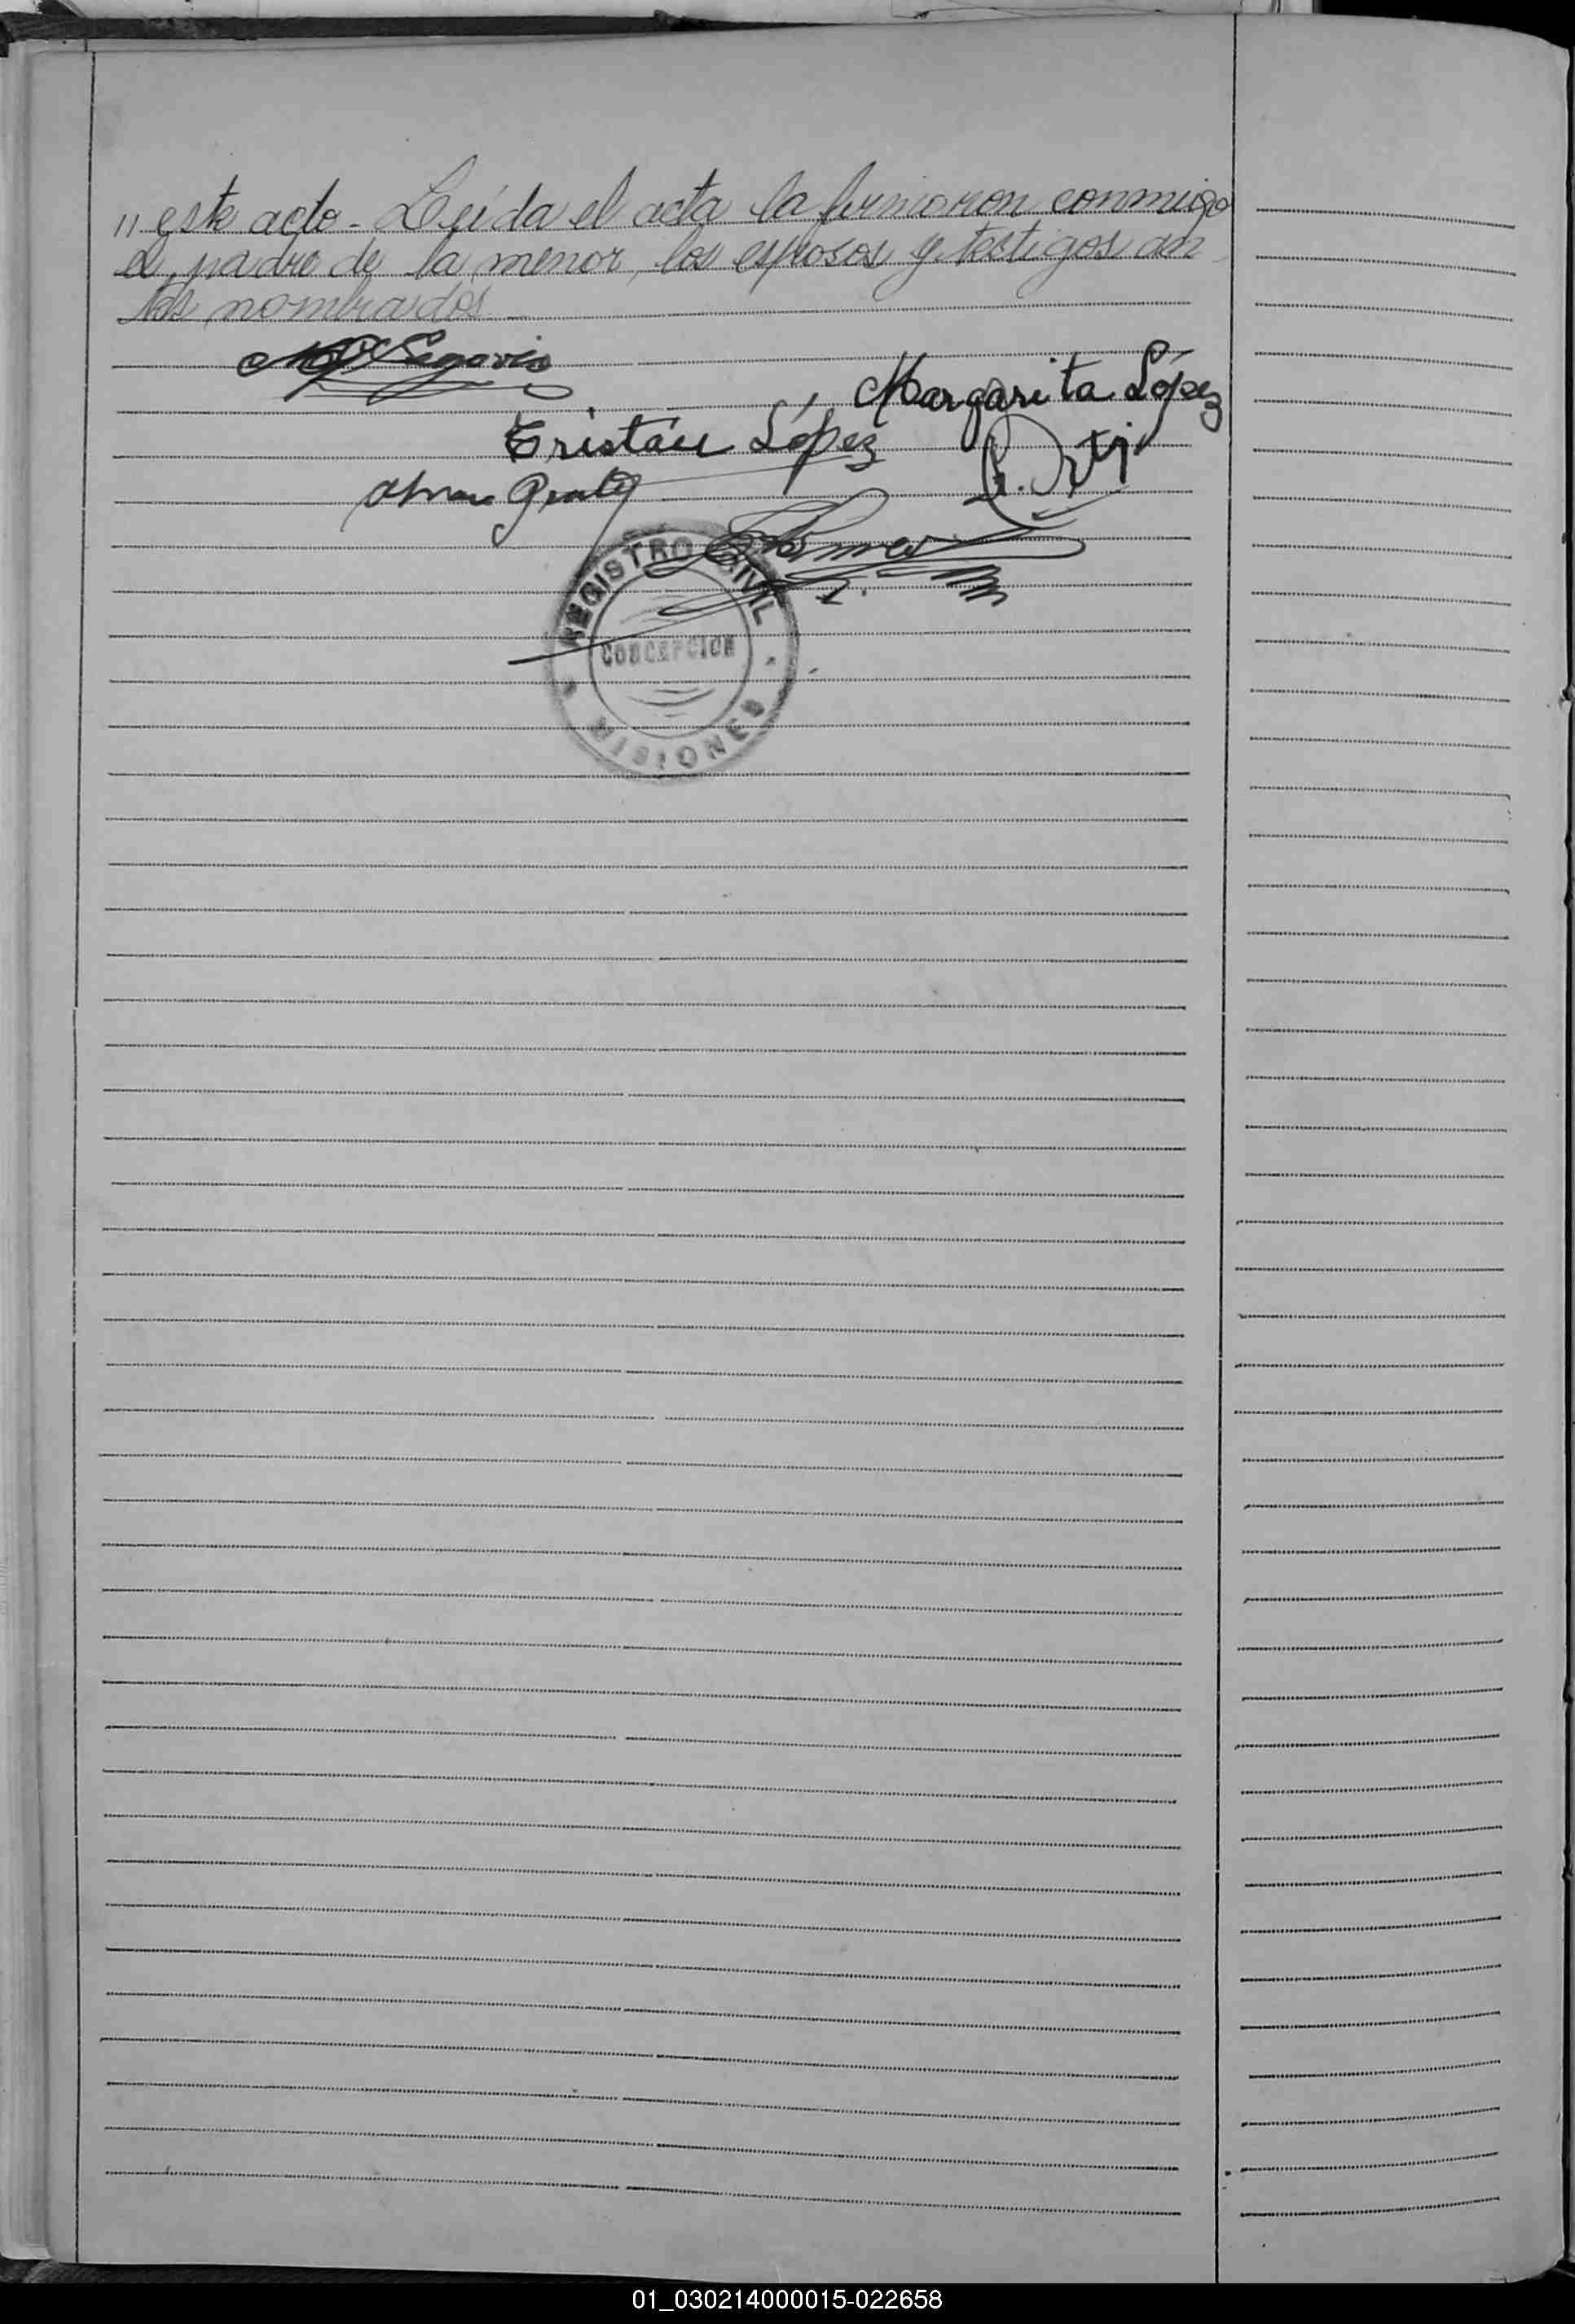 " este acto - Leída el acta la firmaron conmigo
el padre de la menor, los esposos y testigos an
tes nombrados
Segovia
Margarita López
Tristán López
REGISTRO CIVIL
CONCEPCION
MISIONES
01_030214000015-022658